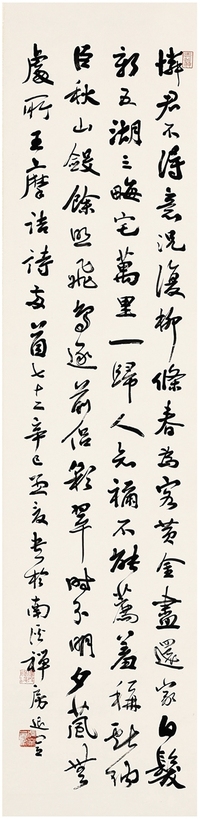 憐君不得意況復柳條春為客黃金盡還家白髮
新五湖三畮宅萬里一歸人知禰不能薦羞稱獻納
臣秋山斂餘照飛鳥逐前侶彩翠時分明夕嵐無
處所王摩詰詩兩首七十二辛巳孟夏書於南禪房